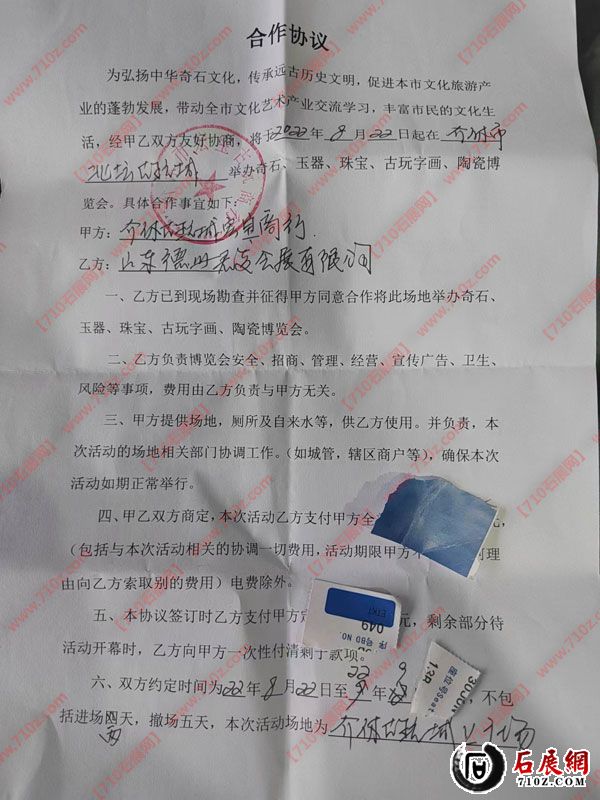 合作协议
为弘扬中华奇石文化，传承远古历史文明，促进本市文化旅游产
业的蓬勃发展，带动全市文化艺术产业交流学习，丰富市民的文化生
活，经甲乙双方友好协商，将于2022年8月22日起在介休市
北坛古玩城 举办奇石、玉器、珠宝、古玩字画、陶瓷博
览会。具体合作事宜如下：
甲方：介休古玩城 商行
乙方：山东德州 会展有限公司
一、乙方已到现场勘查并征得甲方同意合作将此场地举办奇石、
玉器、珠宝、古玩字画、陶瓷博览会。
二、乙方负责博览会安全、招商、管理、经营、宣传广告、卫生、
风险等事项，费用由乙方负责与甲方无关。
三、甲方提供场地，厕所及自来水等，供乙方使用。并负责，本
次活动的场地相关部门协调工作。（如城管，辖区商户等），确保本次
活动如期正常举行。
四、甲乙双方商定，本次活动乙方支付甲方全 元，
（包括与本次活动相关的协调一切费用，活动期限甲方不 何理
由向乙方索取别的费用）电费除外。
五、本协议签订时乙方支付甲方定 元，剩余部分待
活动开幕时，乙方向甲方一次性付清剩于款项。
22 9
六、双方约定时间为22年8月22日至 年 ，不包
括进场四天，撤场五天，本次活动场地为介休古玩城 广场
四
ETKT
049
序号BD NO.
座位号Seat
30JUN
1.3R
【710石展网】www.710z.com
石展網
710Z.COM